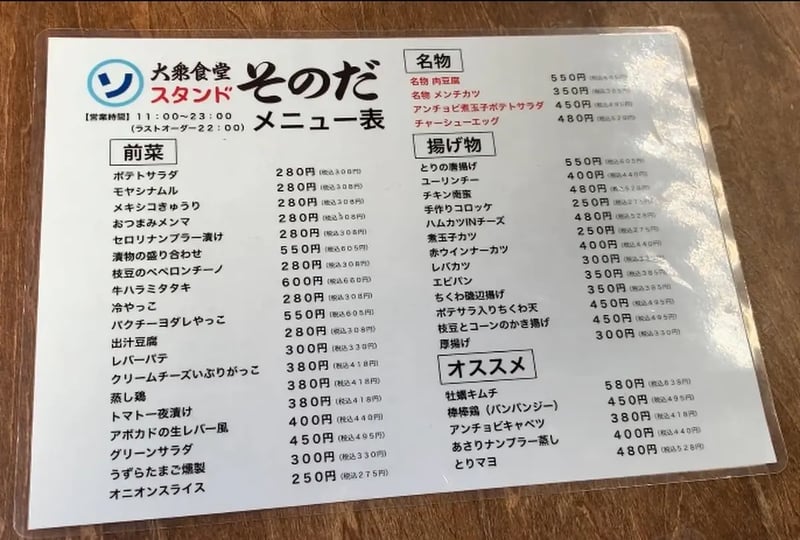 ソ 大衆食堂スタンド そのだ
【営業時間】11:00~23:00
(ラストオーダー22:00)
メニュー表
前菜
ポテトサラダ 280円(税込308円)
モヤシナムル 280円(税込308円)
メキシコきゅうり 280円(税込308円)
おつまみメンマ 280円(税込308円)
セロリナンプラー漬け 280円(税込308円)
漬物の盛り合わせ 550円(税込605円)
枝豆のペペロンチーノ 280円(税込308円)
牛ハラミタタキ 600円(税込660円)
冷やっこ 280円(税込308円)
パクチーヨダレやっこ 550円(税込605円)
出汁豆腐 280円(税込308円)
レバーパテ 300円(税込330円)
クリームチーズいぶりがっこ 380円(税込418円)
蒸し鶏 380円(税込418円)
トマト一夜漬け 380円(税込418円)
アボカドの生レバー風 400円(税込440円)
グリーンサラダ 450円(税込495円)
うずらたまご燻製 300円(税込330円)
オニオンスライス 250円(税込275円)
名物
名物 肉豆腐 550円(税込605円)
名物 メンチカツ 350円(税込385円)
アンチョビ煮玉子ポテトサラダ 450円(税込495円)
チャーシューエッグ 480円(税込528円)
揚げ物
とりの唐揚げ 550円(税込605円)
ユーリンチー 400円(税込440円)
チキン南蛮 480円(税込528円)
手作りコロッケ 250円(税込275円)
ハムカツINチーズ 480円(税込528円)
煮玉子カツ 250円(税込275円)
赤ウインナーカツ 400円(税込440円)
レバカツ 300円
エビパン 350円(税込385円)
ちくわ磯辺揚げ 350円(税込385円)
ポテサラ入りちくわ天 450円(税込495円)
枝豆とコーンのかき揚げ 450円(税込495円)
厚揚げ 300円(税込330円)
オススメ
牡蠣キムチ 580円(税込638円)
棒棒鶏(バンバンジー) 450円(税込495円)
アンチョビキャベツ 380円(税込418円)
あさりナンプラー蒸し 400円(税込440円)
とりマヨ 480円(税込528円)